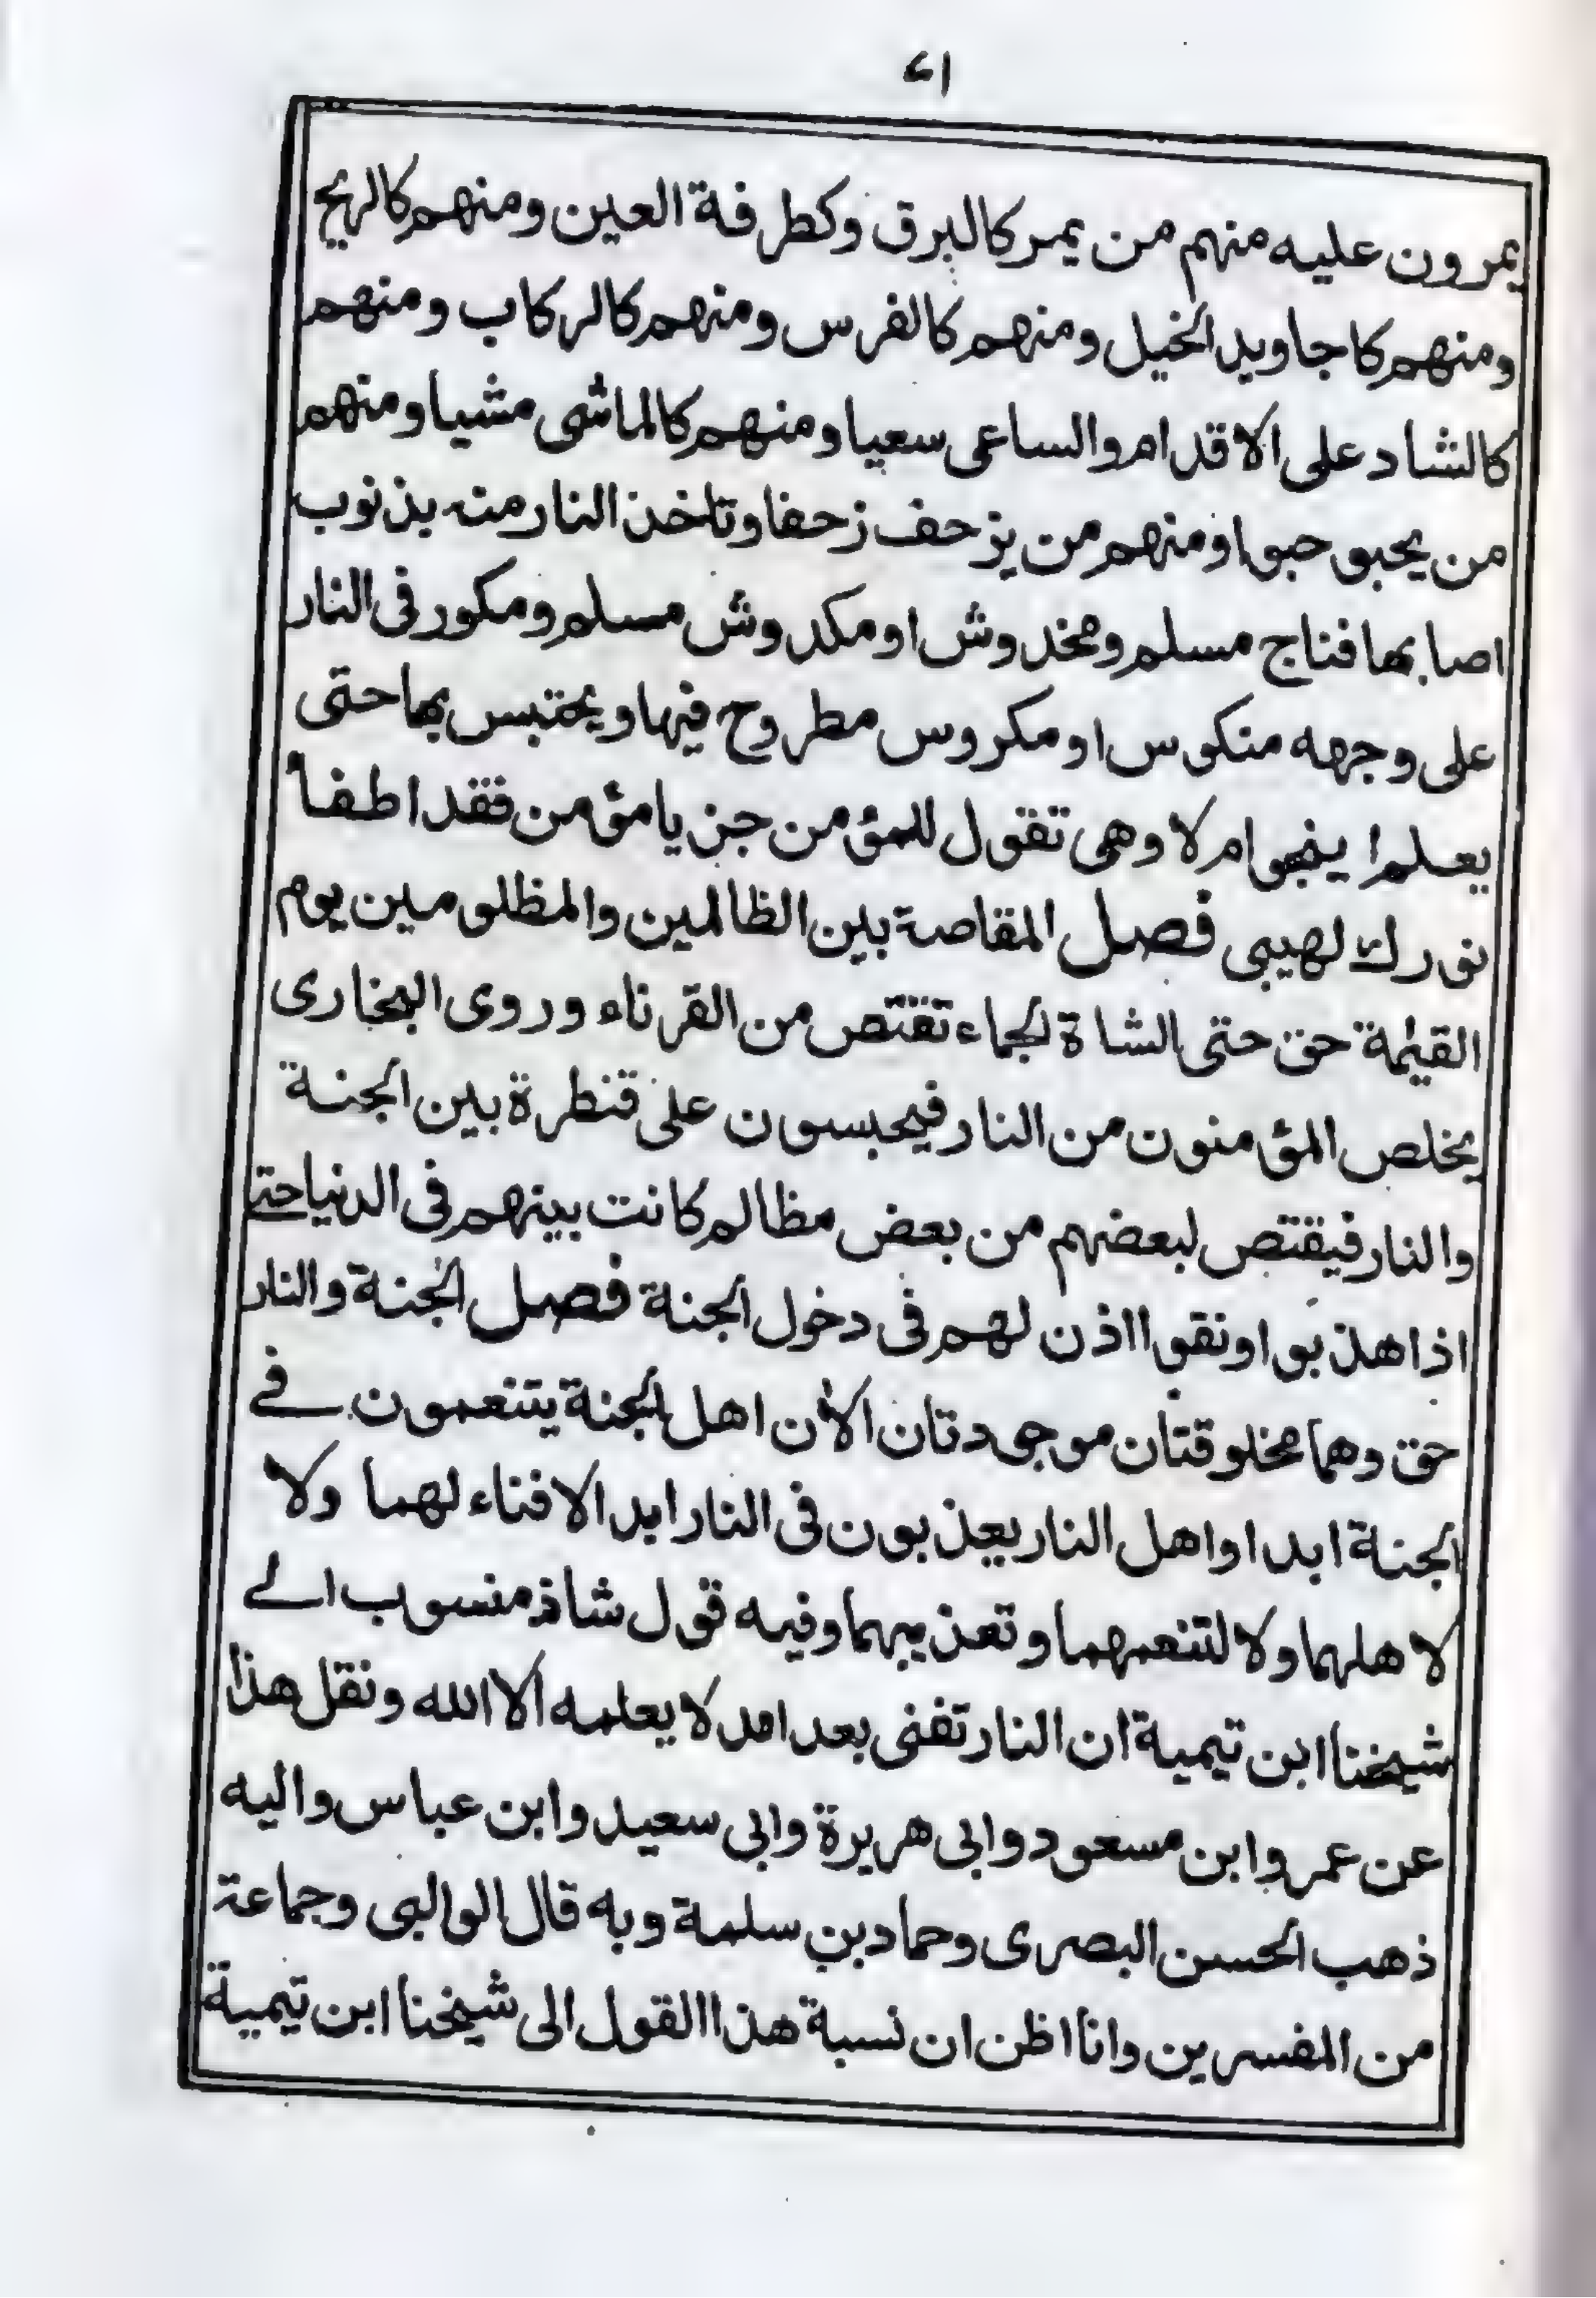 ۷۱
يمرون عليه منهم من يمر كالبرق وكطرفة العين ومنهم كالريح
ومنهم كاجاويد الخيل ومنهم كالفرس ومنهم كالركاب ومنهم
كالشاد على الاقدام والساعى سعيا ومنهم كالماشى مشيا ومنهم
من يحبو حبوا ومنهم من يزحف زحفا وتاخذ النار منه بذنوب
اصابها فناج مسلم ومخدوش او مكدوش مسلم ومكور فى النار
على وجهه منكوس او مكروس مطروح فيها ويحتبس بها حتى
يعلم اينجو ام لا وهى تقول للمؤمن جز يا مؤمن فقد اطفأ
نورك لهيبى فصل المقاصة بين الظالمين والمظلومين يوم
القيمة حق حتى الشاة الجماء تقتص من القرناء وروى البخارى
يخلص المؤمنون من النار فيحبسون على قنطرة بين الجنة
والنار فيقتص لبعضهم من بعض مظالم كانت بينهم فى الدنيا حتى
اذا هذبوا ونقوا اذن لهم فى دخول الجنة فصل الجنة والنار
حق وهما مخلوقتان موجودتان الأن اهل الجنة يتنعمون فے
الجنة ابدا واهل النار يعذبون فى النار ابدا لا فناء لهما ولا
لاهلهما ولا لتنعمهما وتعذيبهما وفيه قول شاذ منسوب الے
شيخنا ابن تيمية ان النار تفنى بعد امد لا يعلمه الا الله ونقل هذا
عن عمر وابن مسعود وابى هريرة وابى سعيد وابن عباس واليه
ذهب الحسن البصرى وحماد بن سلمة وبه قال الوالبى وجماعة
من المفسرين وانا اظن ان نسبة هذا القول الى شيخنا ابن تيمية